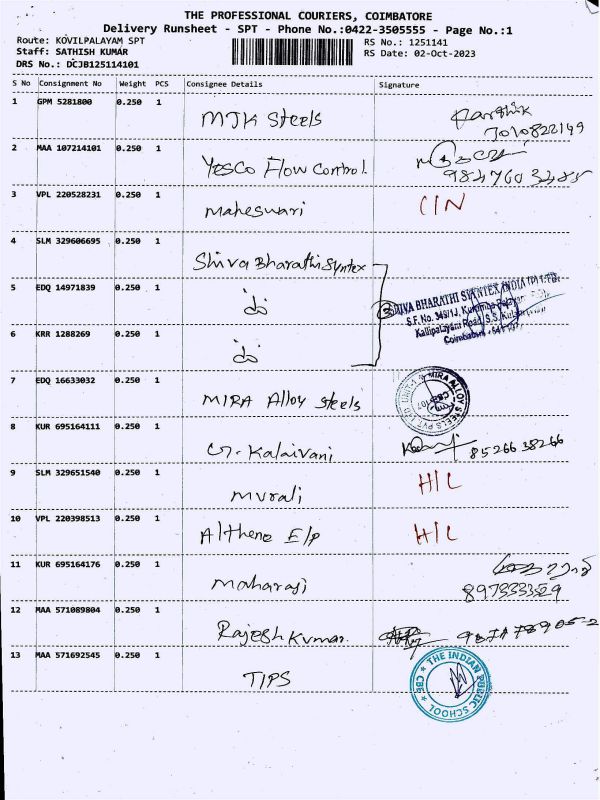 THE PROFESSIONAL COURIERS, COIMBATORE
Delivery Runsheet - SPT - Phone No.:0422-3505555 - Page No.:1
Route: KOVILPALAYAM SPT
RS No.: 1251141
Staff: SATHISH KUMAR
RS Date: 02-Oct-2023
DRS No.: DCJB125114101
S No Consignment No Weight PCS Consignee Details Signature
1 GPM 5281800 0.250 1 MJK Steels Karthik
7010822149
2 MAA 107214101 0.250 1 Yesco Flow Control
9847603485
3 VPL 220528231 0.250 1 Maheswari C/N
4 SLM 329606695 0.250 1 Shiva Bharathi Syntex
5 EDQ 14971839 0.250 1 do
SHIVA BHARATHI SYNTEX INDIA (P) LTD
S.F. No. 349/1J,
Kallipalayam Road, S.S.
Coimbatore - 641
6 KRR 1288269 0.250 1 do
7 EDQ 16633032 0.250 1 MIRA Alloy Steels MIRA ALLOY STEELS PVT LTD UNIT-1
8 KUR 695164111 0.250 1 G. Kalaivani 8526638266
9 SLM 329651540 0.250 1 Murali H/L
10 VPL 220398513 0.250 1 Althene E/P H/L
11 KUR 695164176 0.250 1 Maharaji
897333329
12 MAA 571089804 0.250 1 Rajesh Kumar.
13 MAA 571692545 0.250 1 TIPS THE INDIAN PUBLIC SCHOOL CBE